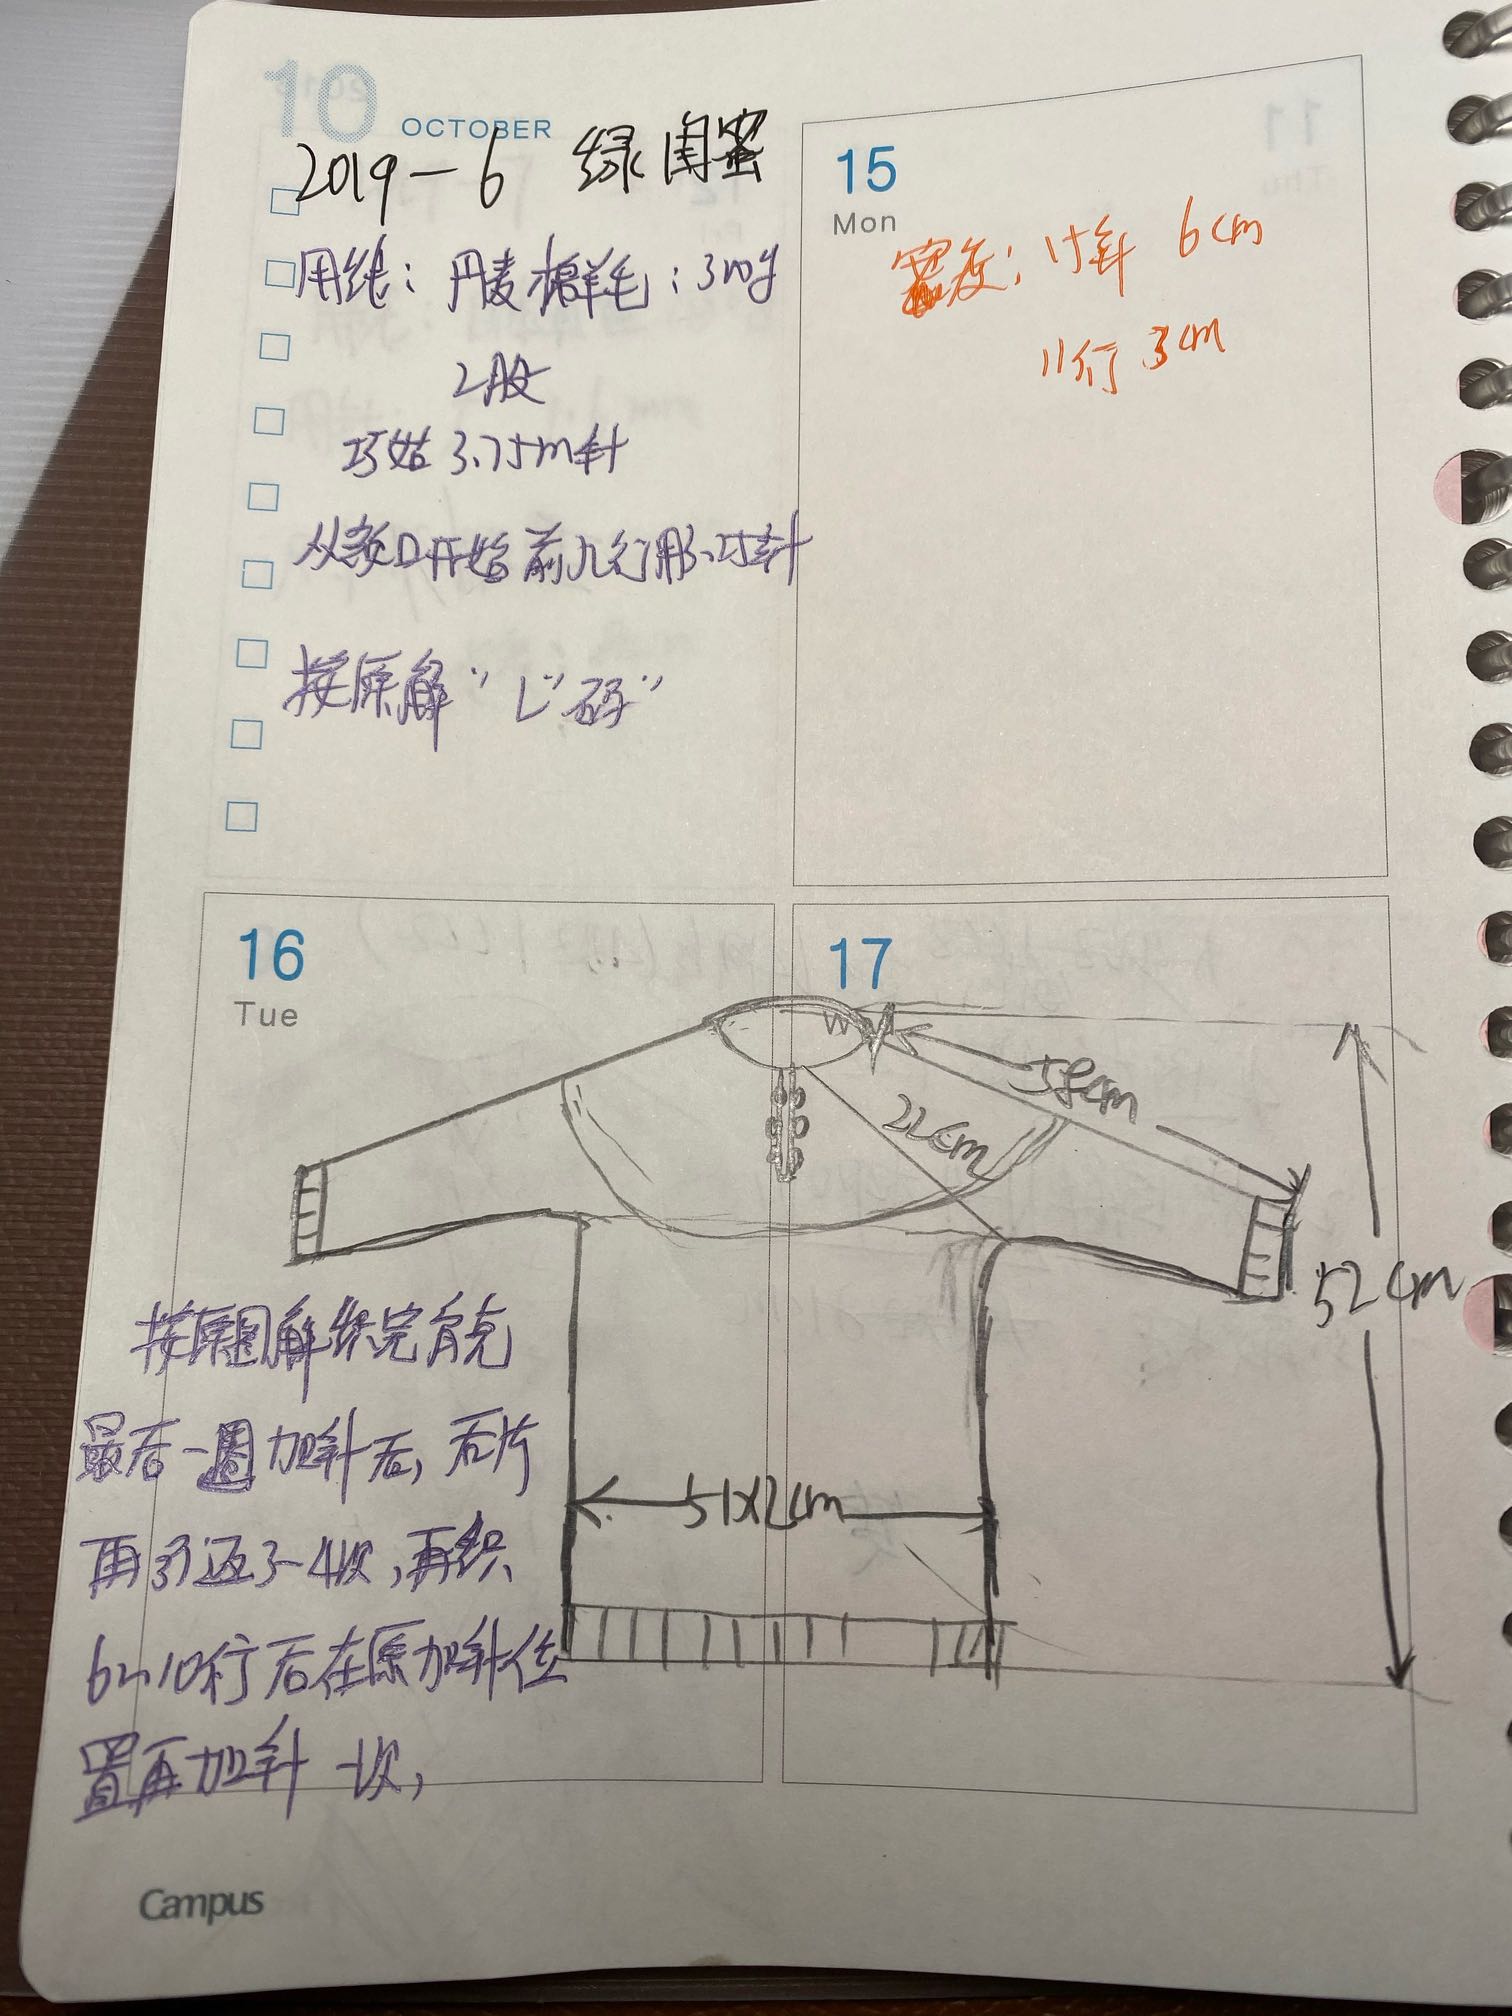 10 OCTOBER
2019-6 绿闺蜜
用线：丹麦棉羊毛：310g
2股
巧姑3.75m针
从领口开始前九行用3.25针
按原解“L”码”
15
Mon
密度：15针 6cm
11行 3cm
16
Tue
17
58cm
22cm
52cm
51x2cm
按原图解织完育克
最后一圈加针后，后片
再引返3-4次，再织
6~10行后在原加针位
置再加针一次，
Campus